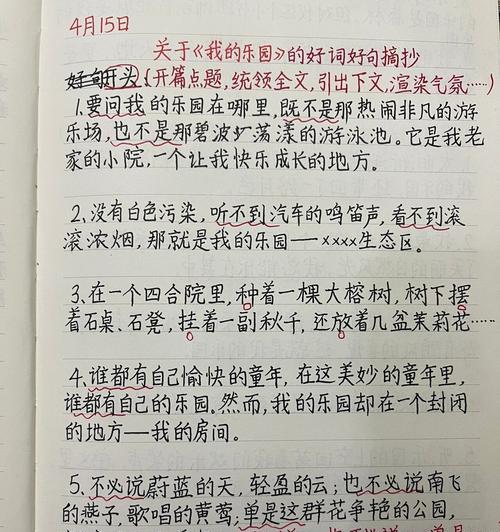 4月15日
关于《我的乐园》的好词好句摘抄
开头(开篇点题,统领全文,引出下文,渲染气氛……)
1.要问我的乐园在哪里,既不是那热闹非凡的游
乐场,也不是那碧波荡漾的游泳池。它是我老
家的小院,一个让我快乐成长的地方。
2.没有白色污染,听不到汽车的鸣笛声,看不到滚
滚浓烟,那就是我的乐园——xxxx生态区。
3.在一个四合院里,种着一棵大榕树,树下摆
着石桌、石凳,挂着一副秋千,还放着几盆茉莉花……
4.谁都有自己愉快的童年,在这美妙的童年里,
谁都有自己的乐园。然而,我的乐园却在一个封闭
的地方——我的房间。
5.不必说蔚蓝的天,轻盈的云;也不必说南飞
的燕子,歌唱的黄莺;单是这群花争艳的公园,